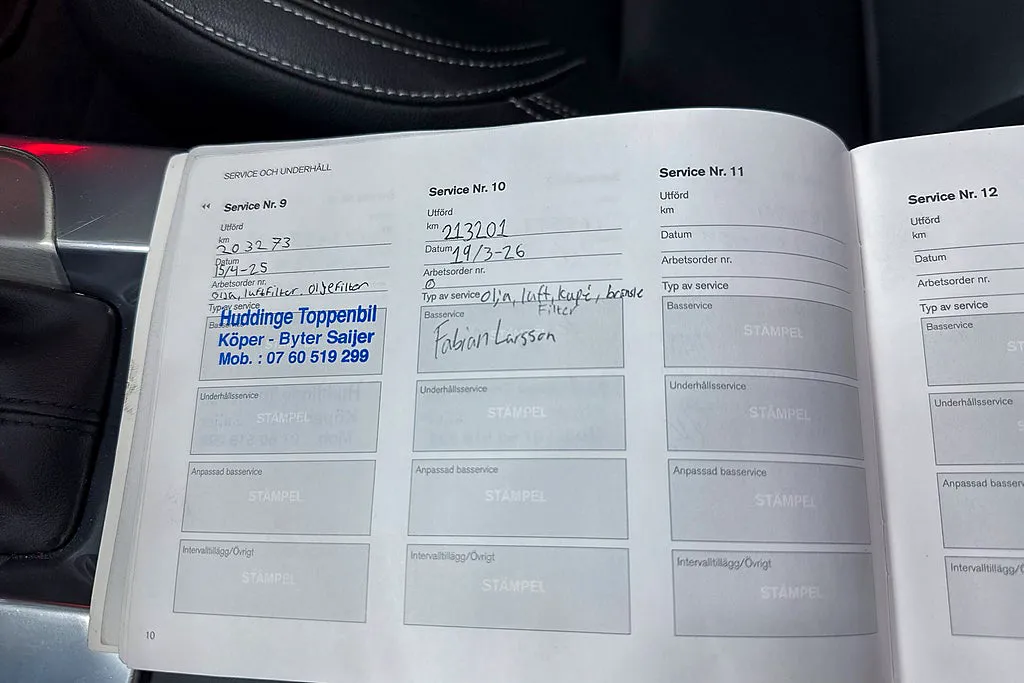 SERVICE OCH UNDERHÅLL
Service Nr. 9
Utförd
km
203273
Datum
15/4-25
Arbetsorder nr.
olja, luftfilter, oljefilter
Typ av service
Huddinge Toppenbil
Köper - Byter Saijer
Mob. : 07 60 519 299
Underhållsservice
STÄMPEL
Anpassad basservice
STÄMPEL
Intervalltillägg/Övrigt
STÄMPEL
10
Service Nr. 10
Utförd
km 213201
Datum 19/3-26
Arbetsorder nr.
0
Typ av service olja, luft, kupé, bränsle
Filter
Basservice
Fabian Larsson
Underhållsservice
STÄMPEL
Anpassad basservice
STÄMPEL
Intervalltillägg/Övrigt
STÄMPEL
Service Nr. 11
Utförd
km
Datum
Arbetsorder nr.
Typ av service
Basservice
STÄMPEL
Underhållsservice
STÄMPEL
Anpassad basservice
STÄMPEL
Intervalltillägg/Övrigt
STÄMPEL
Service Nr. 12
Utförd
km
Datum
Arbetsorder nr.
Typ av service
Basservice
ST
Underhållsservice
S
Anpassad basserv
Intervalltillägg/Ö